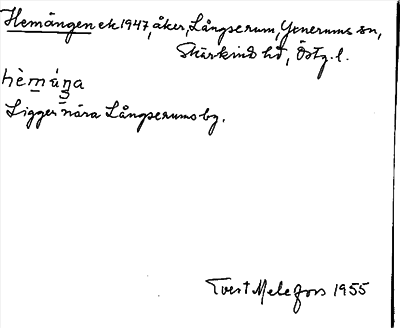 Hemängen ek 1947, åker, Långserum, Yxnerums sn,
Skärkind hd, Östg. l.
hè̀múŋa
Ligger nära Långserums by.
Evert Melefors 1955